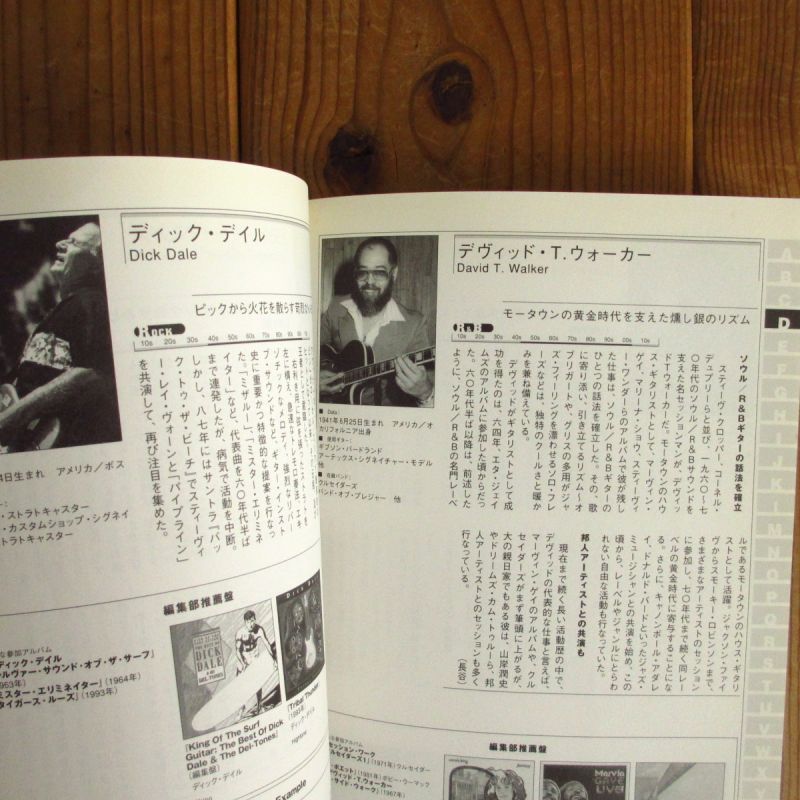 ディック・デイル
Dick Dale
ピックから火花を散らす
Rock
10s 20s 30s 40s 50s 60s 70s 80s 90s
ブ・サウンドなど、ギター・インスト
史に重要かつ特徴的な提案を行なっ
た。「ミザルー」、「ミスター・エリミネ
イター」など、代表曲を六〇年代半ば
まで連発したが、病気で活動を中断。
しかし、八七年にはサントラ『バッ
ク・トゥ・ザ・ビーチ』でスティーヴ
ィー・レイ・ヴォーンと「パイプライン」
を共演して、再び注目を集めた。
4日生まれ アメリカ／ボス
ストラトキャスター
・カスタムショップ・シグネイ
トラトキャスター
編集部推薦盤
な参加アルバム
ディック・デイル
ルヴァー・サウンド・オブ・ザ・サーフ』
ミスター・エリミネイター』（1964年）
タイガース・ルーズ』（1993年）
DICK DALE
『King Of The Surf
Guitar: The Best Of Dick
Dale & The Del-Tones』
（編集盤）
ディック・デイル
『Tribal Thunder』
（1993年）
ディック・デイル
Example
デヴィッド・T.ウォーカー
David T. Walker
モータウンの黄金時代を支えた燻し銀のリズム
R&B
10s 20s 30s 40s 50s 60s 70s 80s 90s 10s
■ Data：
1941年6月25日生まれ アメリカ／オ
カリフォルニア出身
■ 使用ギター：
ギブソン・バードランド
アーテックス・シグネイチャー・モデル
他
■ 在籍バンド：
クルセイダーズ
バンド・オブ・プレジャー 他
ソウル／R&Bギターの話法を確立
スティーヴ・クロッパー、コーネル・
デュプリーらと並び、一九六〇〜七
〇年代のソウル／R&Bサウンドを
支えた名セッションマンが、デヴィッ
ドTウォーカーだ。モータウンのハウ
ス・ギタリストとして、マーヴィン・
ゲイ、マリーナ・ショウ、スティーヴィ
ー・ワンダーらのアルバムで彼が残し
た仕事は、ソウル／R&Bギターの
ひとつの話法を確立した。その、歌
に寄り添い、引き立てるリズム〜オ
ブリガートや、グリスの多用がジャ
ズ・フィーリングを漂わせるソロ・フレ
ーズなどは、独特のクールさと暖か
みを兼ね備えている。
デヴィッドがギタリストとして成
功を得たのは、六四年、エタ・ジェイ
ムズのアルバムに参加した頃からだっ
た。六〇年代半ば以降は、前述した
ように、ソウル／R&Bの名門レーベ
ルであるモータウンのハウス・ギタリ
ストとして活躍。ジャクソン・ファイ
ヴからスモーキー・ロビンソンまで、
さまざまなアーティストのセッション
に参加し、七〇年代まで続く同レー
ベルの黄金時代に寄与することにな
る。さらに、キャノンボール・アダレ
イ、ドナルド・バードといったジャズ・
ミュージシャンとの共演を始め、この
頃から、レーベルやジャンルにとらわ
れない自由な活動も行なっていた。
邦人アーティストとの共演も
現在まで続く長い活動歴の中で、
デヴィッドの代表的な仕事と言えば、
マーヴィン・ゲイのアルバムや、クル
セイダーズがまず筆頭に上がるが、
大の親日家でもある彼は、山岸潤史
やドリームズ・カム・トゥルーら、邦
人アーティストとのセッションも多く
行なっている。　（長谷）
編集部推薦盤
な参加アルバム
セッション・ワーク
（1971年）クルセイダー
（1981年）ボビー・ウーマック
ヴィッド・T.ウォーカー
（1967年）
Marvin
GAYE
LIVE!
A
B
C
D
E
F
G
H
I
J
K
L
M
N
O
P
Q
R
S
T
U
V
W
X
Y